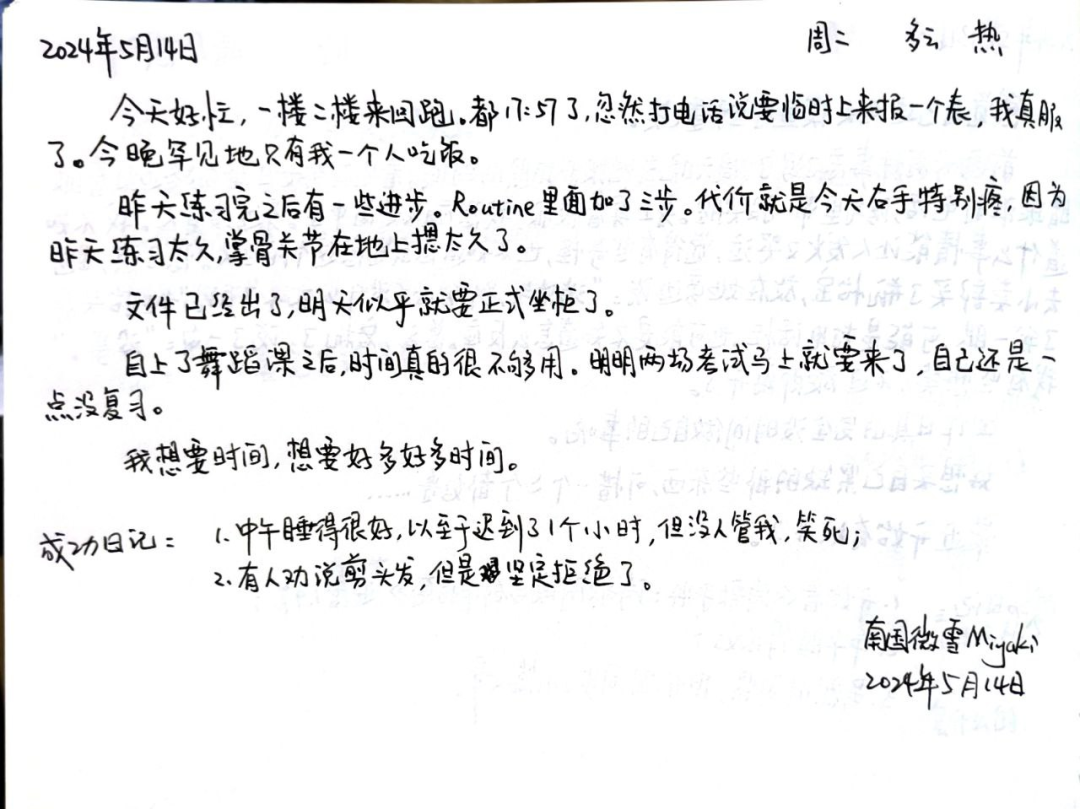 2024年5月14日 周二 多云 热
今天好忙，一楼二楼来回跑。都17:57了，忽然打电话说要临时上来报一个表，我真服
了。今晚罕见地只有我一个人吃饭。
昨天练习完之后有一些进步。Routine里面加了三步。代价就是今天右手特别疼，因为
昨天练习太久，掌骨关节在地上摁太久了。
文件已经出了，明天似乎就要正式坐柜了。
自上了舞蹈课之后，时间真的很不够用。明明两场考试马上就要来了，自己还是一
点没复习。
我想要时间，想要好多好多时间。
成功日记：1.中午睡得很好，以至于迟到了1个小时，但没人管我，笑死；
2.有人劝说剪头发，但是坚定拒绝了。
南国微雪Miyaki
2024年5月14日